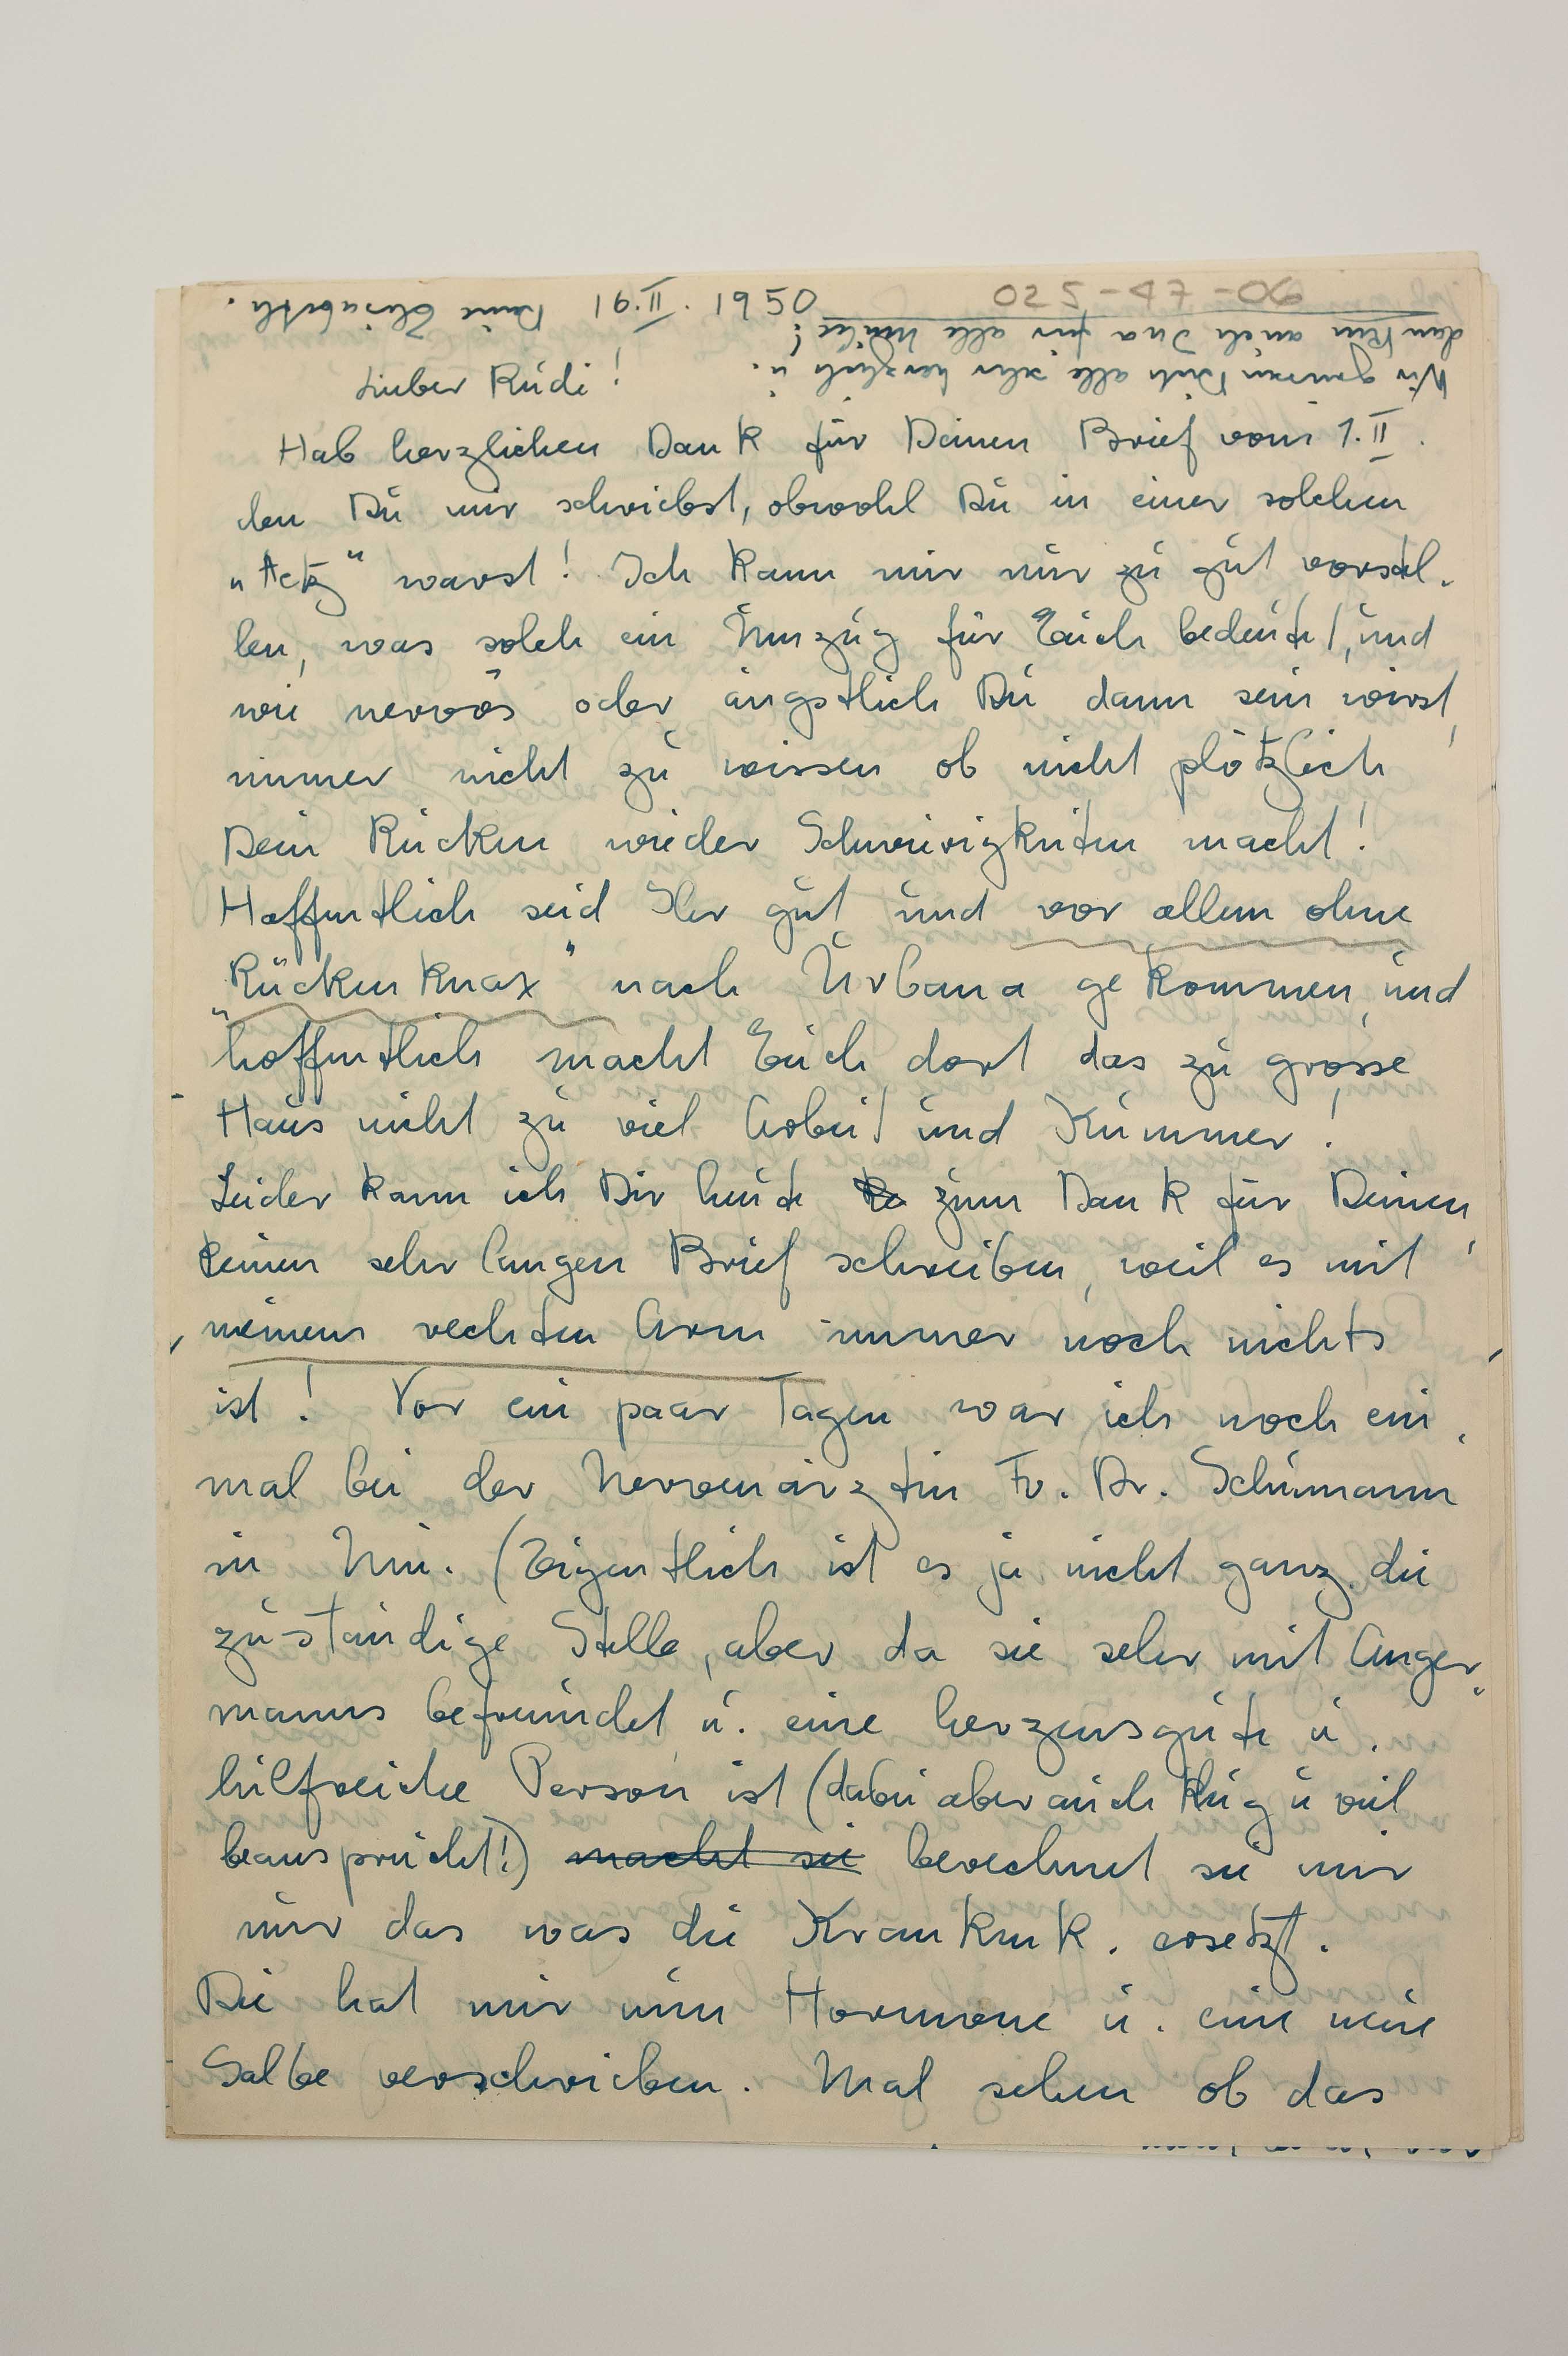 025-47-06
16.II.1950
Lieber Rudi!
Hab herzlichen Dank für Deinen Brief vom 1.II.
den Du mir schriebst, obwohl Du in einer solchen
„Hetz" warst! Ich kann mir nur zu gut vorstel-
len, was solch ein Umzug für Euch bedeutet, und
wie nervös oder ängstlich Du dann sein wirst,
immer nicht zu wissen ob nicht plötzlich
Dein Rücken wieder Schwierigkeiten macht!
Hoffentlich seid Ihr gut und vor allem ohne
„Rückenknax" nach Urbana gekommen, und
hoffentlich macht Euch dort das zu grosse
Haus nicht zu viel Arbeit und Kummer!
Leider kann ich Dir heute zum Dank für Deinen
keinen sehr langen Brief schreiben, weil es mit
meinem rechten Arm immer noch nichts
ist! Vor ein paar Tagen war ich noch ein-
mal bei der Nervenärztin Fr. Dr. Schumann
in Mü. (Eigentlich ist es ja nicht ganz die
zuständige Stelle, aber da sie sehr mit Anger-
manns befreundet u. eine herzensgute u.
hilfreiche Person ist (dabei aber auch klug u viel
beansprucht!) macht sie berechnet sie mir
nur das was die Krankenk. ersetzt.
Die hat mir nun Hormone u. eine neue
Salbe verschrieben. Mal sehen ob das
Wir grüssen Dich alle sehr herzlich u.
danken auch Ina für alle Mühe!
Deine Elisabeth.